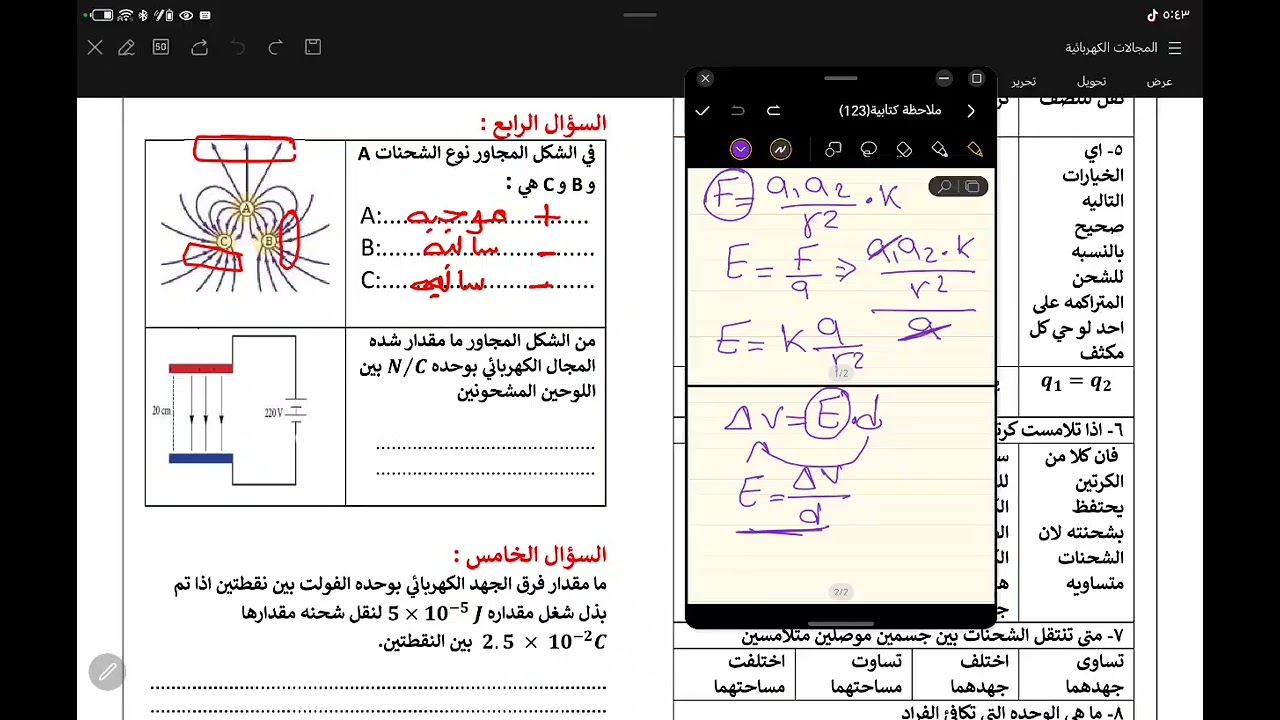 ٥:٤٣
المجالات الكهربائية
50
عرض
تحويل
تحرير
السؤال الرابع :
في الشكل المجاور نوع الشحنات A
و B و C هي :
A:..... موجبه +
B:..... سالبه -
C:..... سالبه -
A
C
B
من الشكل المجاور ما مقدار شده
المجال الكهربائي بوحده N/C بين
اللوحين المشحونين
20 cm
220 V
السؤال الخامس :
ما مقدار فرق الجهد الكهربائي بوحده الفولت بين نقطتين اذا تم
بذل شغل مقداره 5 × 10⁻⁵ J لنقل شحنه مقدارها
2.5 × 10⁻² C بين النقطتين.
ملاحظة كتابية(123)
F = q₁q₂/r² · K
E = F/q ⇒ q₁q₂·K/r² / q
E = K q/r²
1/2
ΔV = E·d
E = ΔV/d
2/2
٥- اي
الخيارات
التاليه
صحيح
بالنسبه
للشحن
المتراكمه على
احد لوحي كل
مكثف
q₁ = q₂
٦- اذا تلامست
فان كلا من
الكرتين
يحتفظ
بشحنته لان
الشحنات
متساويه
٧- متى تنتقل الشحنات بين جسمين موصلين متلامسين
تساوى جهدهما
اختلف جهدهما
تساوت مساحتهما
اختلفت مساحتهما
٨- ما هي الوحده التي تكافئ الفراد